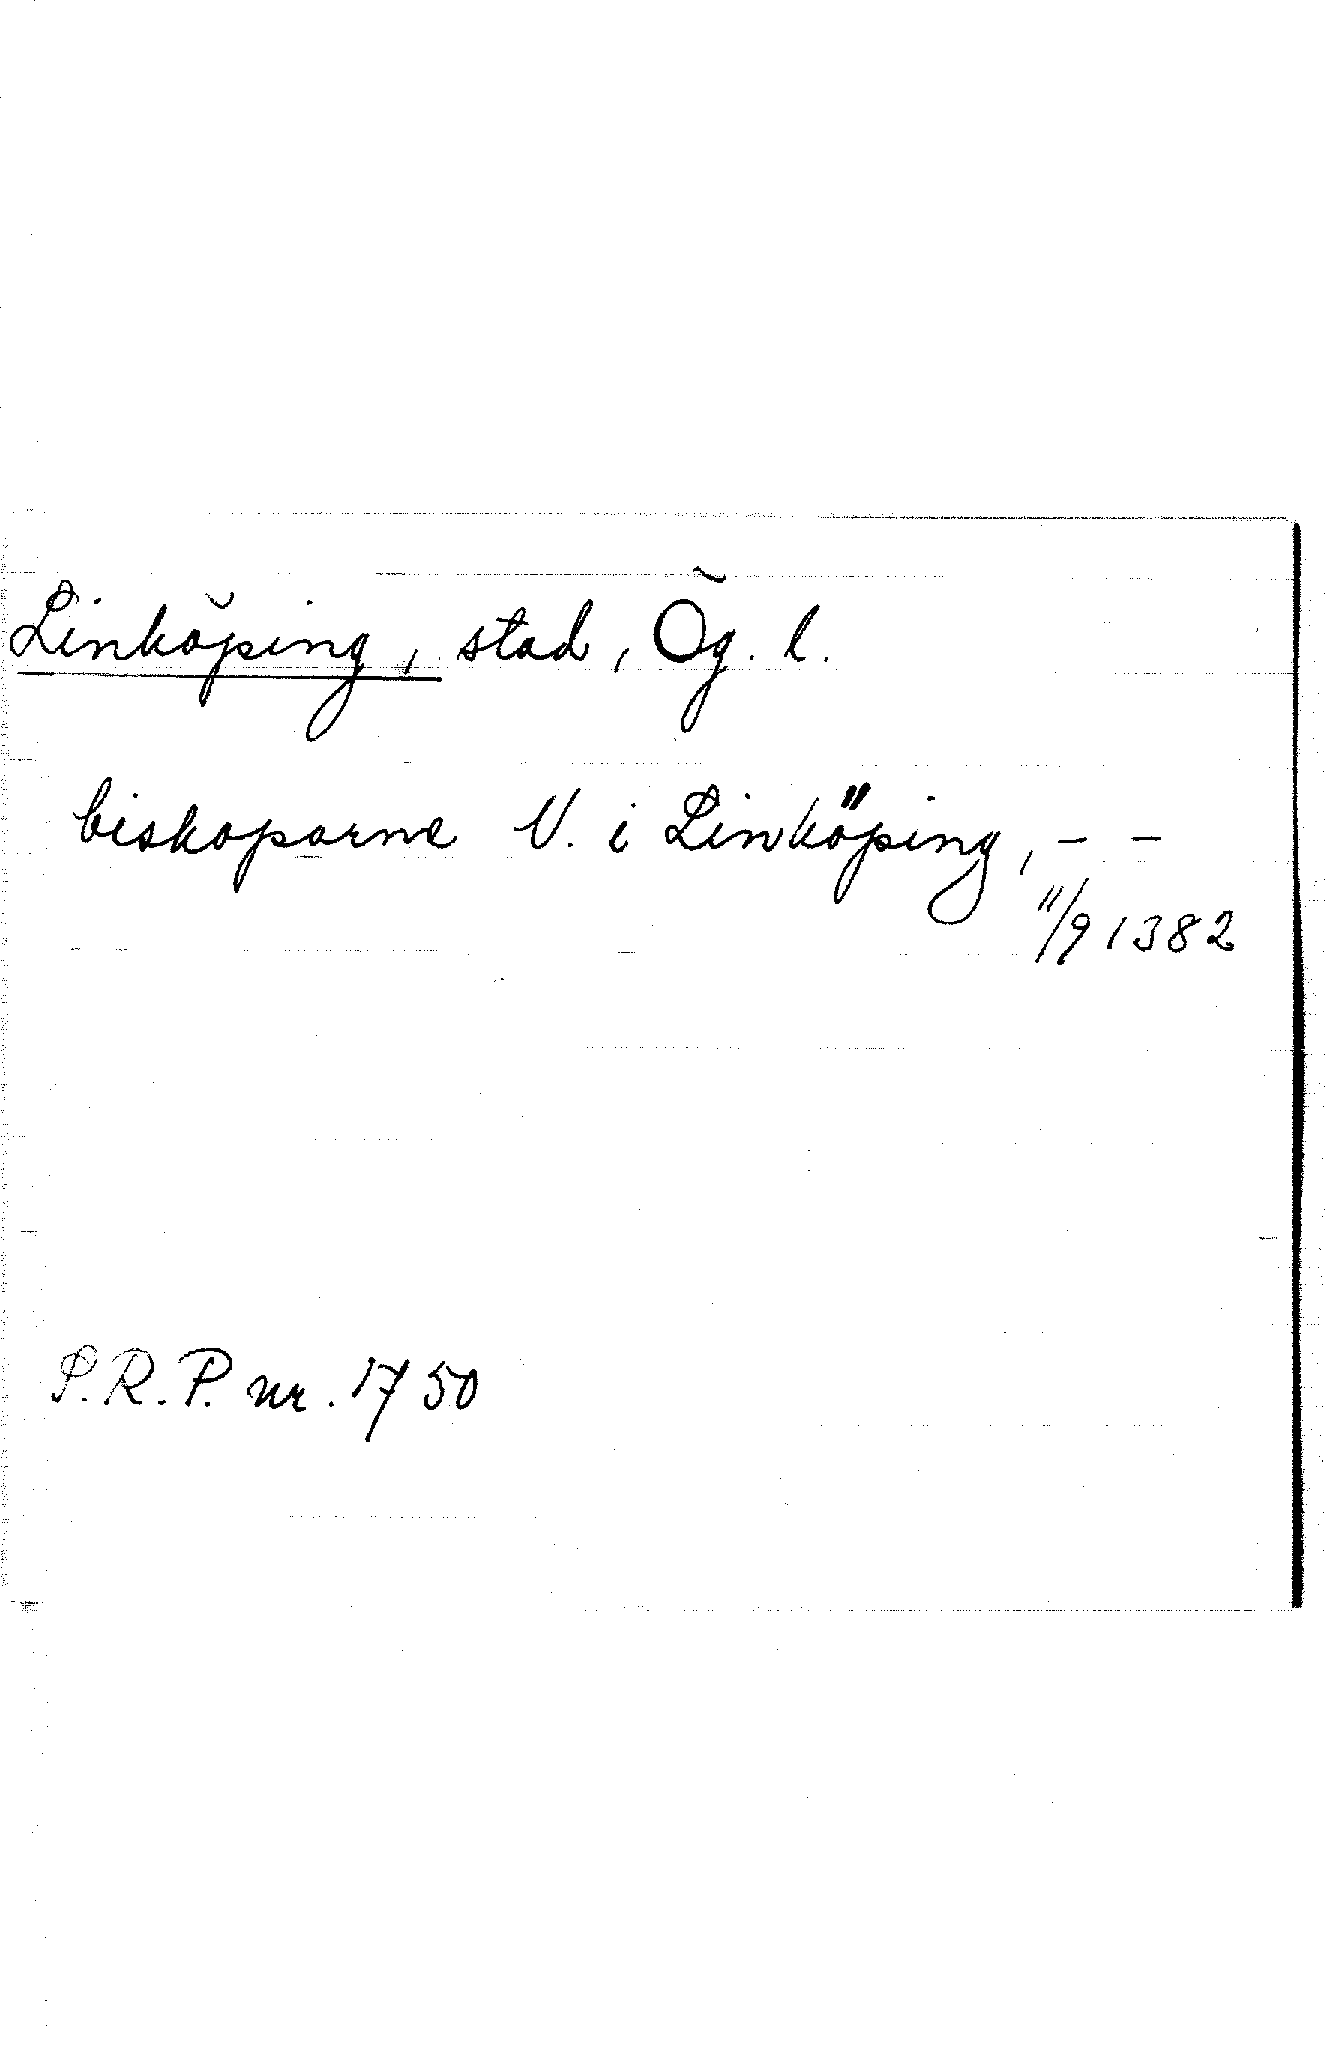 Linköping, stad, Ög. l.
biskoparne N. i Linköping, - -
11/9 1382
S.R.P. nr. 1750